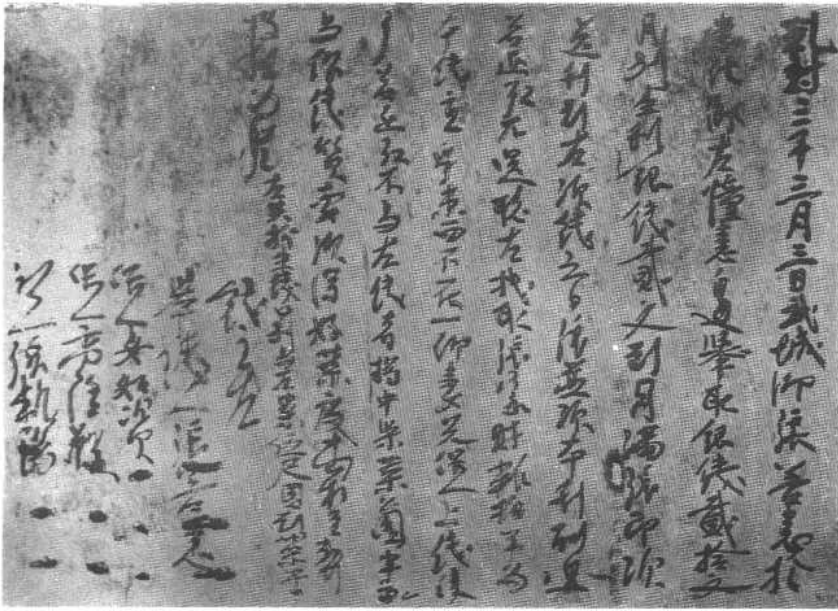 乾封三年三月三日武城鄉張善憙於
崇化鄉左憧憙邊舉取銀錢貳拾文
月別生利銀錢貳文到月滿張即須
送利到左須錢之日張並須本利酬還
若延引不還聽左拽取張家財雜物平為
本錢直身東西不在一仰妻兒保人上錢使
了若延引不與左錢者將中渠菜園半畝
與作錢質要須得好菜處兩和立契
獲指為驗左共折生錢日別與左菜伍尺園到菜干日
錢主左
舉錢人張善憙
保人女如資
保人高隆歡
知見人張軌端